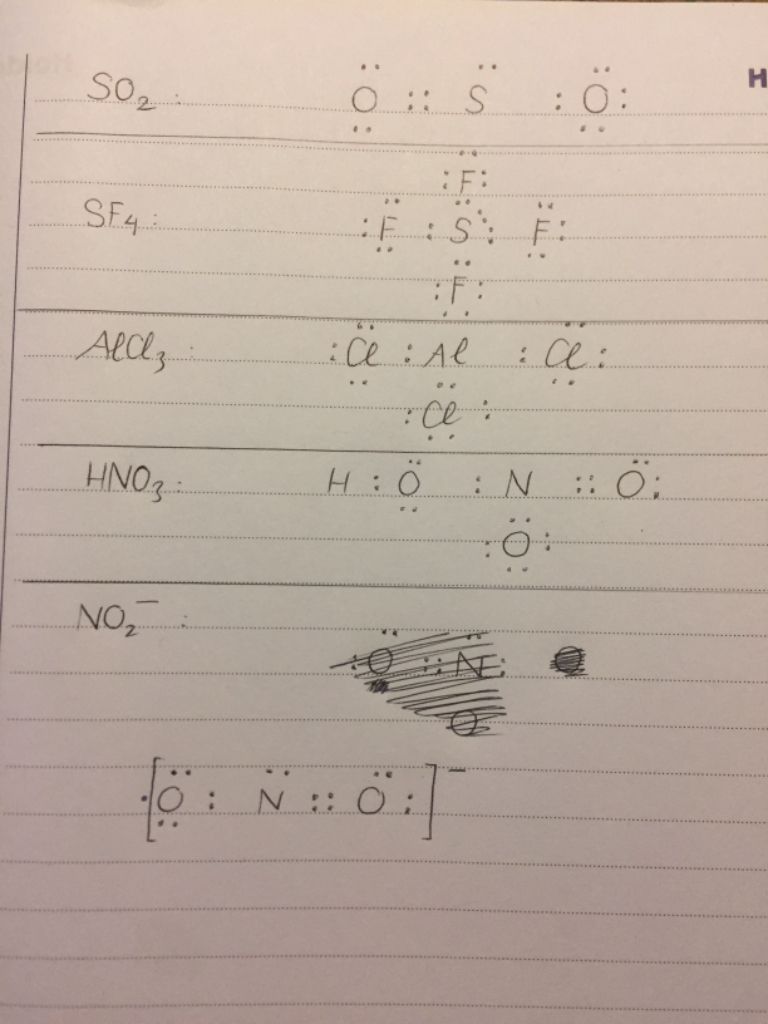 H
SO₂ : O :: S : O :
F
SF₄ : : F : S : F :
: F :
AlCl₃ : : Cl : Al : Cl :
: Cl :
HNO₃ : H : O : N :: O :
: O :
NO₂⁻ :
: O :: N :
O
[ · O : N :: O : ]⁻